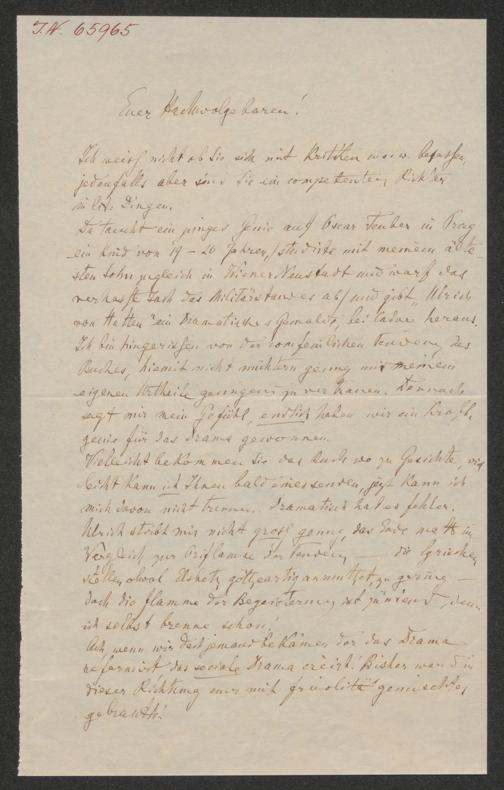 I.N. 65965
Euer Hochwolgeboren!
Ich weiß nicht ob Sie sich mit Kritiken u.s.w. befassen,
jedenfalls aber sind Sie ein competenter Richter
in Dingen.
Da taucht ein junges Genie auf Oscar Teuber in Prag
ein Kind von 19 – 20 Jahren, studirte mit meinem älte-
sten Sohn zugleich in Wiener Neustadt und warf das
verhaßte Joch des Militärstandes ab und gibt „Ulrich
von Hutten" ein dramatisches Gemälde, bei heraus.
Ich bin hingerissen von der Tendenz des
Buches, hiemit nicht nüchtern genug um meinem
eigenen Urtheile genügend zu vertrauen. Dennoch
sagt mir mein Gefühl, endlich haben wir ein Kraft-
genie für das Drama gewonnen.
Vielleicht bekommen Sie das Buch wo zu Gesichte, viel
leicht kann ich Ihnen bald eines senden, jetzt kann ich
mich davon nicht trennen. Dramatisch hat es Fehler.
Ulrich stirbt mir nicht groß genug, das Ende matt im
Vergleich zur Oriflamme der Tendenz — die lyrischen
Stellen, obwol anmuthet, zu gering —
doch die Flamme der Begeisterung denn
ich selbst brenne schon!
Ach wenn wir doch jemand bekämen der das Drama
reformirt das sociale Drama creirt! Bisher ward in
dieser Richtung nur mit frivolität gemischtes
gebracht!